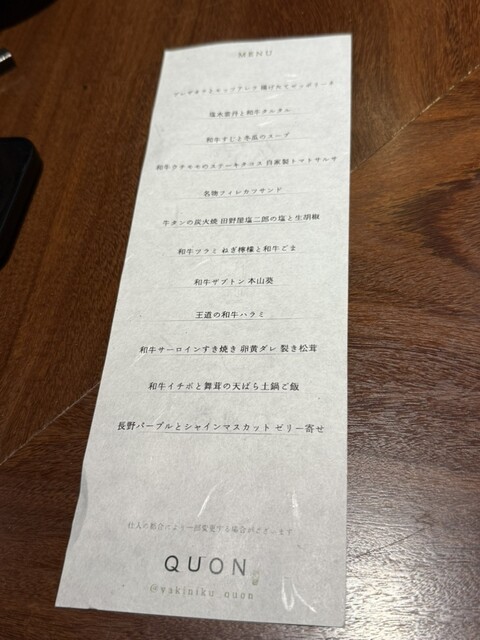 MENU
ブレザオラとストラッチャテッラ 揚げたてゼッポリーネ
塩水雲丹と和牛タルタル
和牛すじと冬瓜のスープ
和牛ウチモモのステーキタコス 自家製トマトサルサ
名物フィレカツサンド
牛タンの炭火焼 田野屋塩二郎の塩と生胡椒
和牛ツラミ ねぎ檸檬と和牛ごま
和牛ザブトン 本山葵
王道の和牛ハラミ
和牛サーロインすき焼き 卵黄ダレ 裂き松茸
和牛イチボと舞茸の天ばら土鍋ご飯
長野パープルとシャインマスカット ゼリー寄せ
仕入の都合により一部変更する場合がございます
QUON
@yakiniku_quon